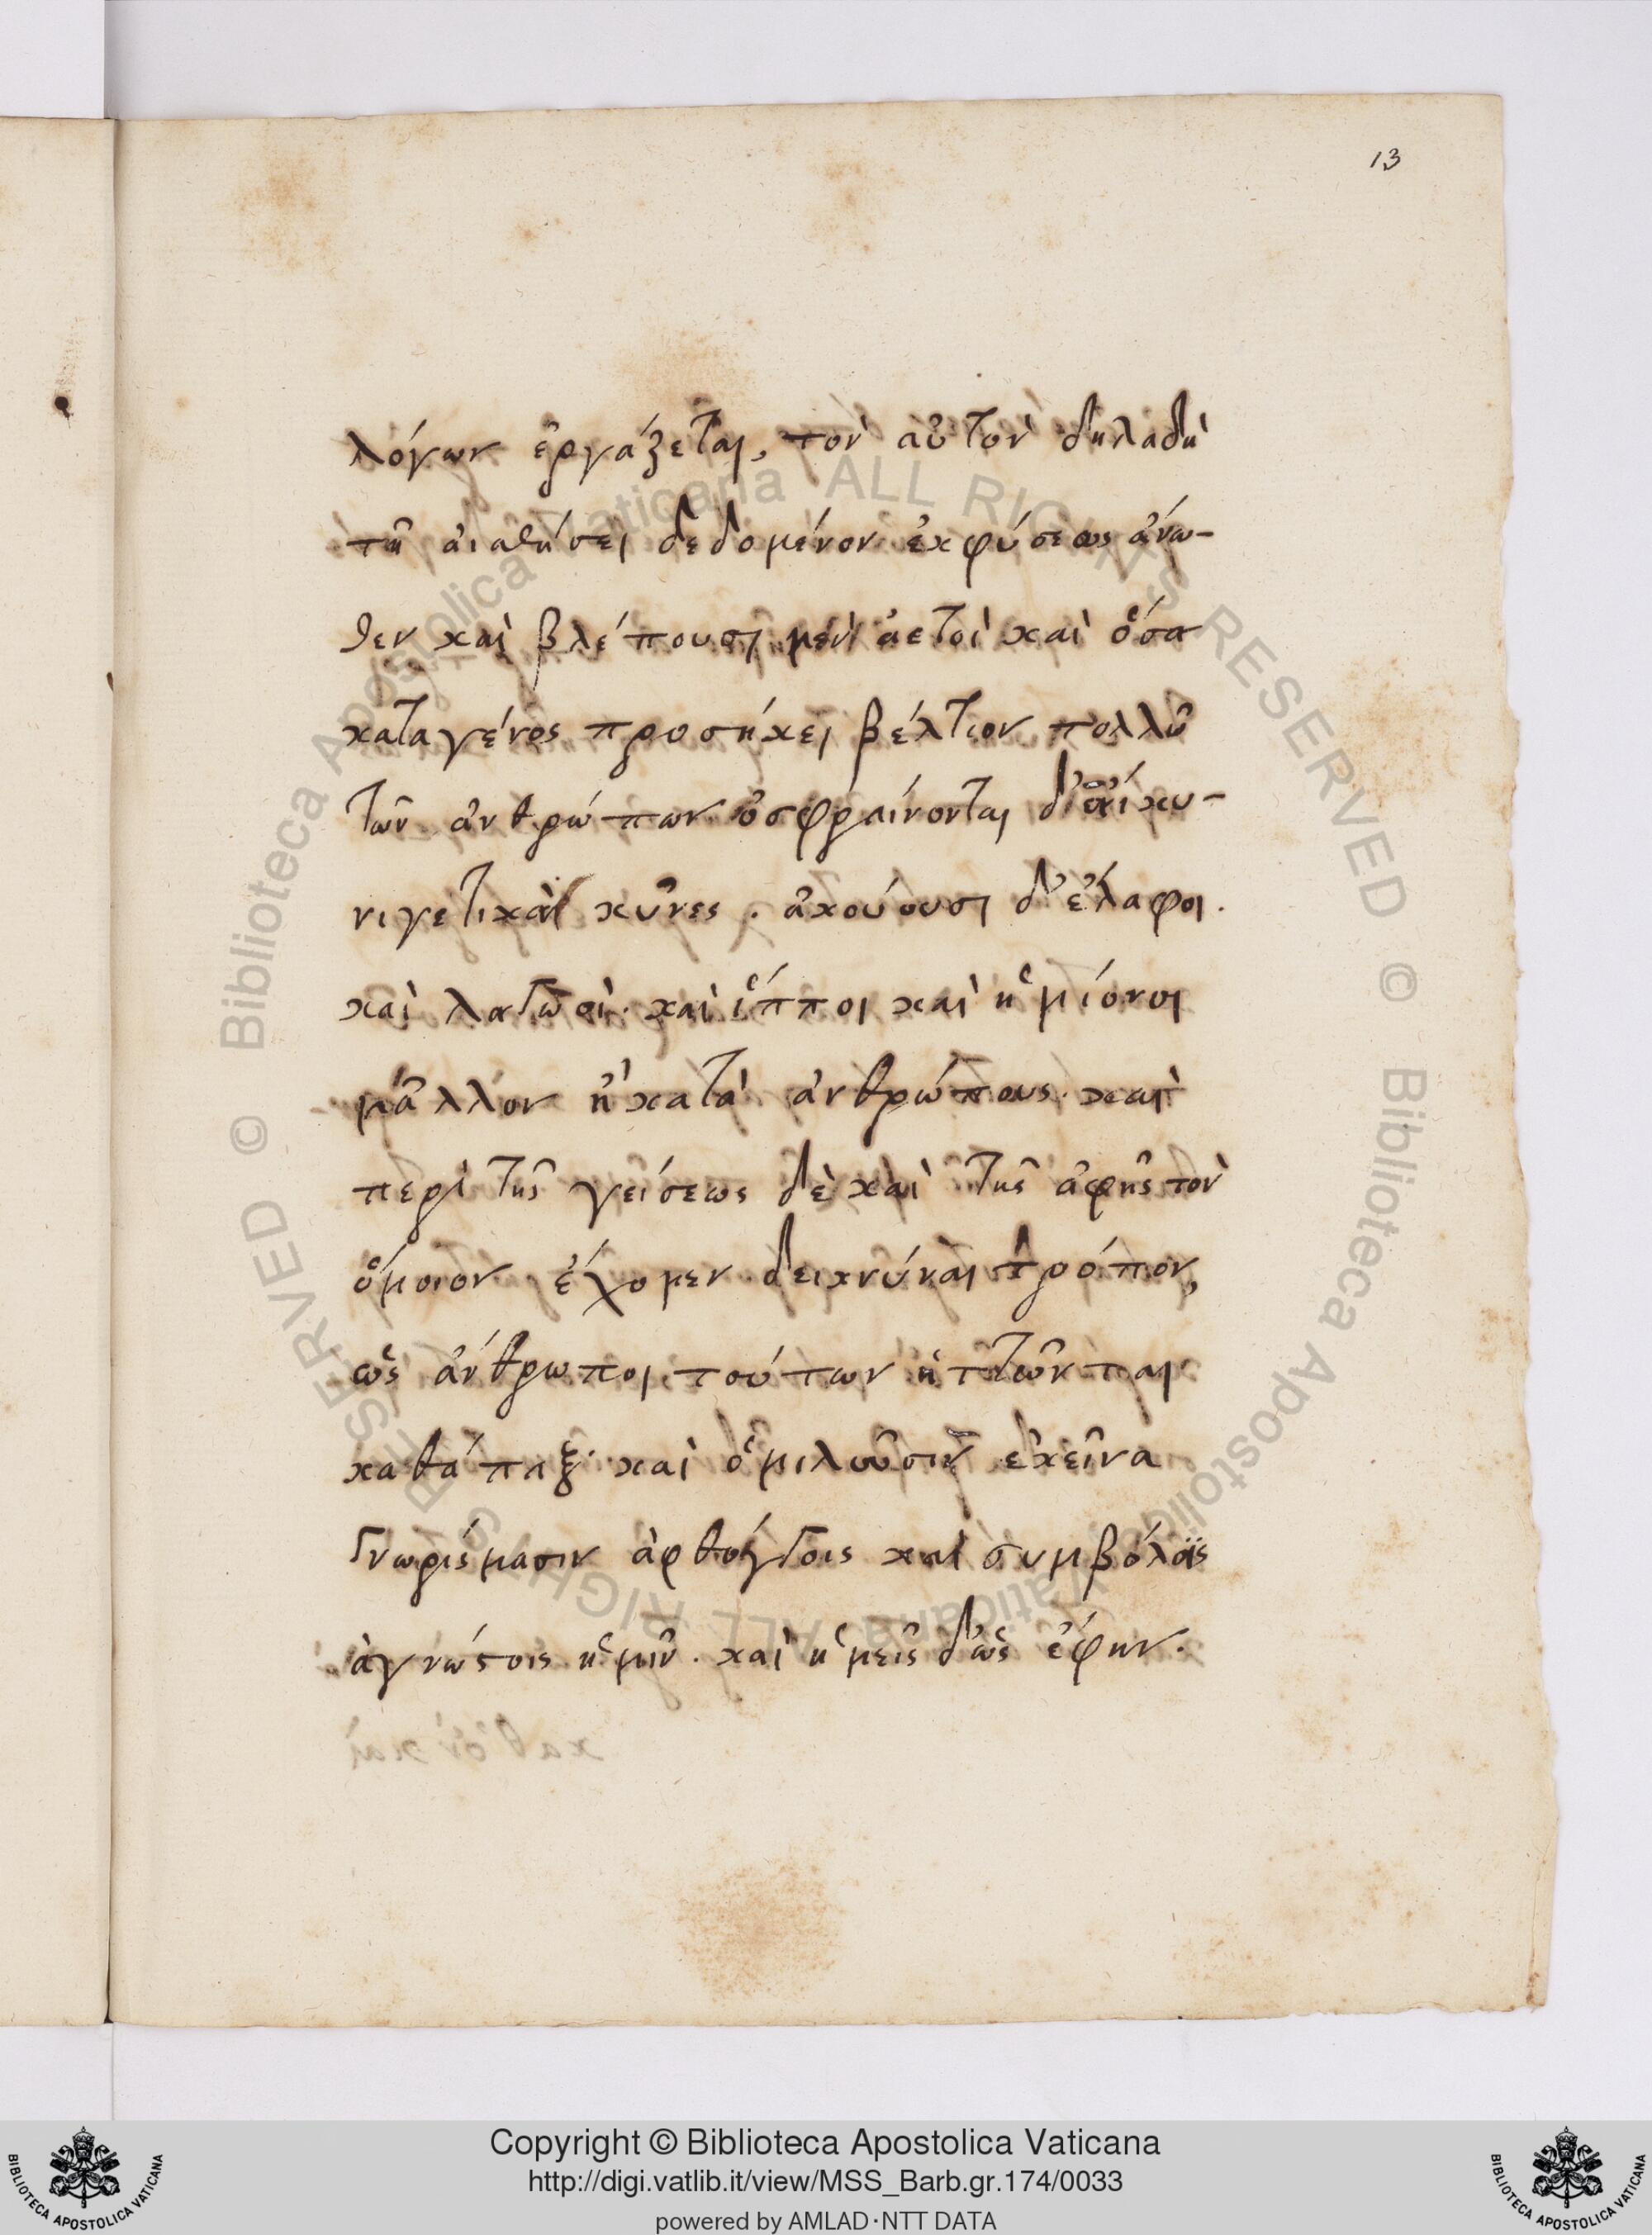 13
λόγων ἐργάζεται, τὸν αὐτὸν δηλαδὴ
τῇ αἰσθήσει δεδομένον ἐκφύσεως ἄνω-
θεν καὶ βλέπουσι μὲν ἀετοὶ καὶ ὅσα
καταγένος προσήκει βέλτιον πολλῦ
τῶν ἀνθρώπων ὀσφραίνονται δ' αἱ κυ-
νιγετικαὶ κῦνες . ἀκούουσι δ' ἔλαφοι .
καὶ λαγῶοὶ · καὶ ἵπποι καὶ ἡμίονοι
μᾶλλον ἢ κατὰ ἀνθρώπους · καὶ
περὶ τῆς γεύσεως δὲ καὶ τῆς ἁφῆς τὸν
ὅμοιον ἔχομεν δεικνύναι τρόπον,
ὡς ἄνθρωποι τούτων ἡττῶνται
καθάπαξ · καὶ ὁμιλοῦσιν ἐκεῖνα
γνωρίσμασιν ἀφθόγγοις καὶ συμβόλοις
ἀγνώστοις ἡμῖν · καὶ ἡμεῖς δ' ὡς ἔφην ·
Copyright © Biblioteca Apostolica Vaticana
http://digi.vatlib.it/view/MSS_Barb.gr.174/0033
powered by AMLAD·NTT DATA
BIBLIOTECA APOSTOLICA VATICANA
BIBLIOTECA APOSTOLICA VATICANA
© Biblioteca Apostolica Vaticana ALL RIGHTS RESERVED
© Biblioteca Apostolica Vaticana ALL RIGHTS RESERVED